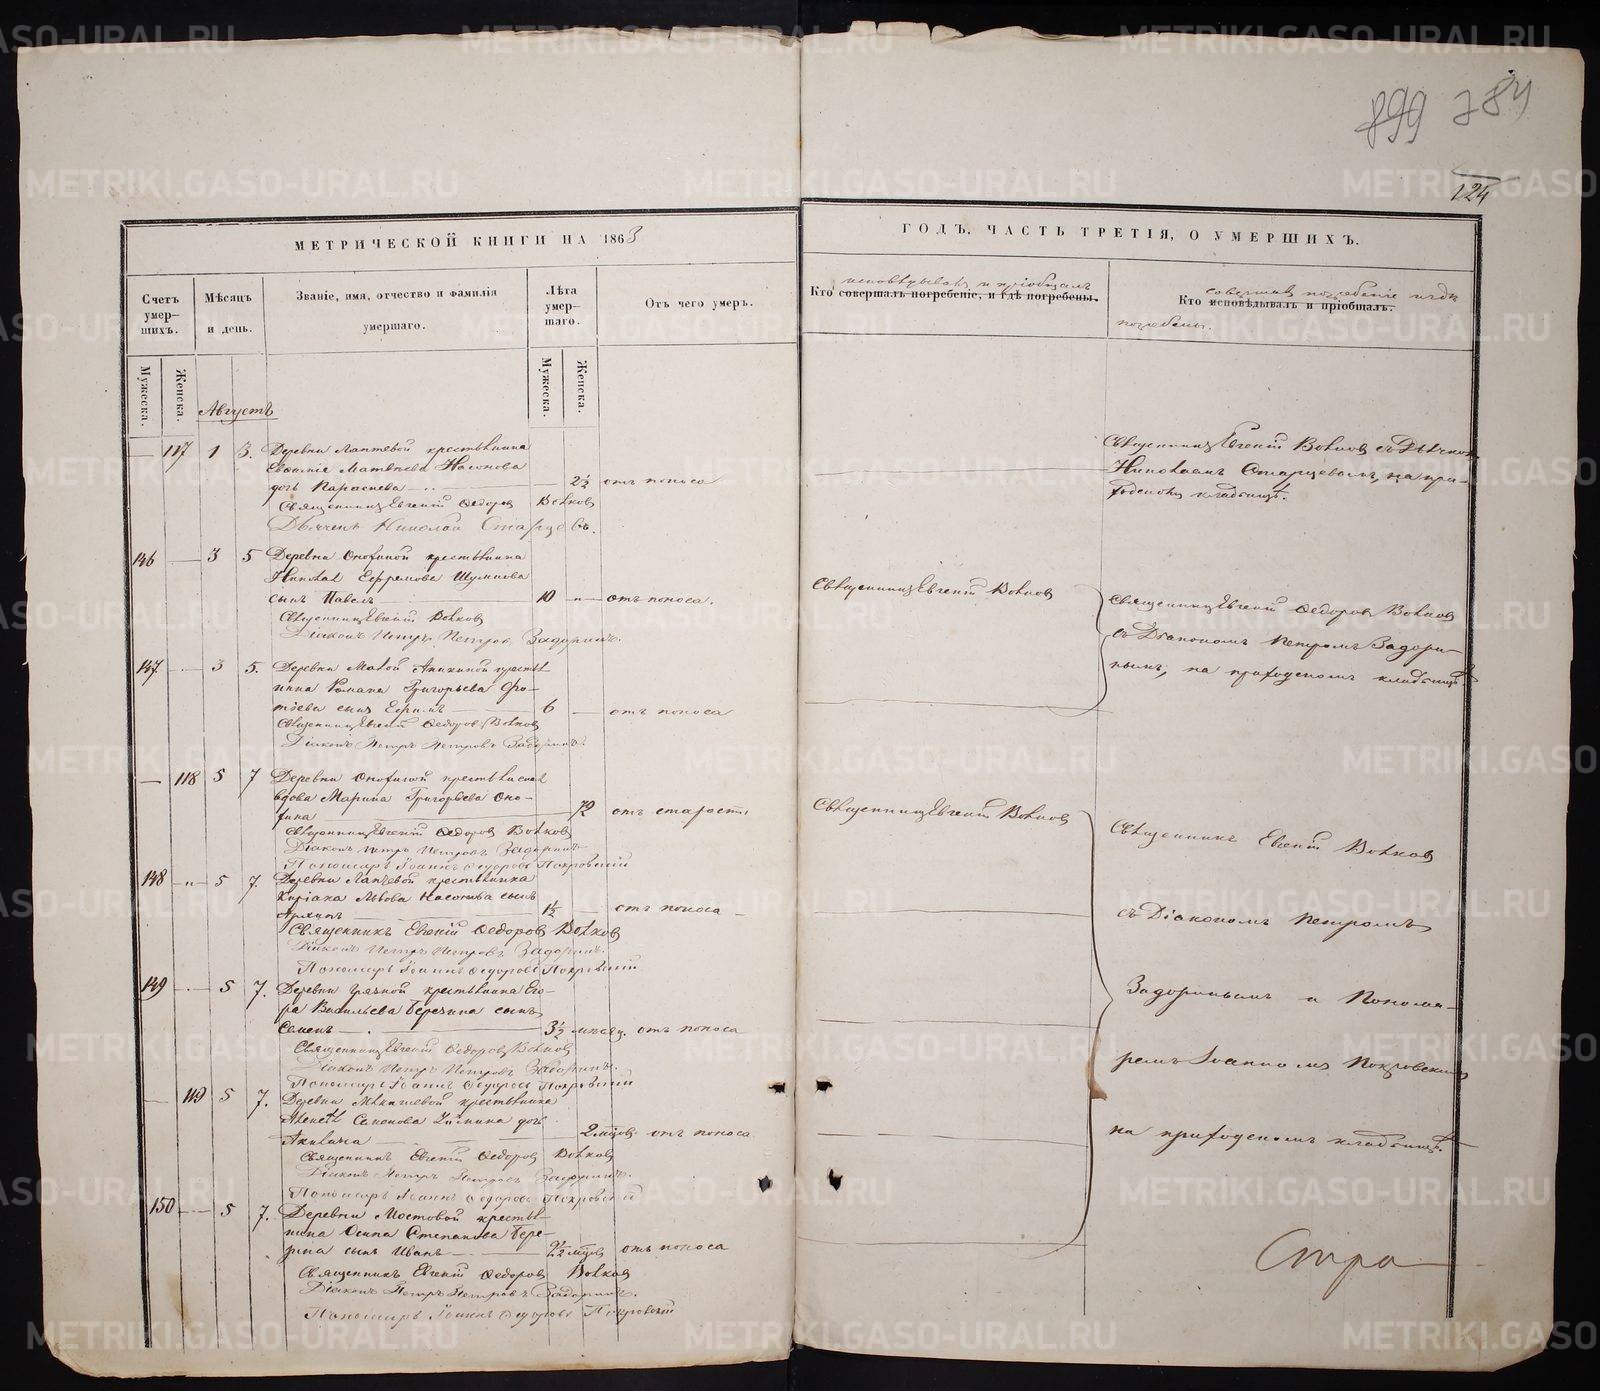 METRIKI.GASO-URAL.RU
899 784
124
МЕТРИЧЕСКОЙ КНИГИ НА 1863
ГОДЪ, ЧАСТЬ ТРЕТІЯ, О УМЕРШИХЪ.
Счетъ умер-шихъ.
Мѣсяцъ и день.
Званіе, имя, отчество и фамилія умершаго.
Лѣта умер-шаго.
Отъ чего умеръ.
исповѣдывалъ и пріобщалъ
Кто совершалъ погребеніе, и гдѣ погребены.
совершалъ погребеніе и гдѣ
Кто исповѣдывалъ и пріобщалъ.
погребены.
Мужеска.
Женска.
Мужеска.
Женска.
Августъ
117 1 3. Деревни Лаптевой крестьянина
Евѳимія Матвѣева Насонова
дочь Параскева 2½ отъ поноса
Священникъ Евгеній Ѳедоровъ Волковъ
Дьячекъ Николай Старцевъ.
Священникъ Евгеній Волковъ съ Дьячкомъ
Николаемъ Старцевымъ, на при-
ходскомъ кладбищѣ.
146 3 5 Деревни Онохиной крестьянина
Николая Ефремова Шумкова
сынъ Павелъ 10 отъ поноса.
Священникъ Евгеній Волковъ
Діаконъ Петръ Петровъ Задоринъ.
Священникъ Евгеній Волковъ
Священникъ Евгеній Ѳедоровъ Волковъ
съ Діакономъ Петромъ Задори-
нымъ, на приходскомъ кладбищѣ.
147 3 5. Деревни Малой Аникиной крестья-
нина Романа Григорьева Фо-
тѣева сынъ Ефримъ 6 отъ поноса
Священникъ Евгеній Ѳедоровъ Волковъ
Діаконъ Петръ Петровъ Задоринъ.
118 5 7 Деревни Онохиной крестьянская
вдова Марина Григорьева Оно-
хина 72 отъ старости
Священникъ Евгеній Ѳедоровъ Волковъ
Діаконъ Петръ Петровъ Задоринъ
Пономарь Іоаннъ Ѳедоровъ Покровскій
Священникъ Евгеній Волковъ
Священникъ Евгеній Волковъ
съ Діакономъ Петромъ
Задоринымъ и Понома-
ремъ Іоанномъ Покровскимъ
на приходскомъ кладбищѣ.
148 5 7. Деревни Лаптевой крестьянина
Киріака Львова Насонова сынъ
Архипъ 1½ отъ поноса
Священникъ Евгеній Ѳедоровъ Волковъ
Діаконъ Петръ Петровъ Задоринъ.
Пономарь Іоаннъ Ѳедоровъ Покровскій
149 5 7. Деревни Грязной крестьянина Его-
ра Васильева Березина сынъ
Семенъ 3½ мѣсяц. отъ поноса
Священникъ Евгеній Ѳедоровъ Волковъ
Діаконъ Петръ Петровъ Задоринъ.
Пономарь Іоаннъ Ѳедоровъ Покровскій
119 5 7. Деревни крестьянина
Алексѣя Самсонова дочь
Акилина 2 мѣсов. отъ поноса
Священникъ Евгеній Ѳедоровъ Волковъ
Діаконъ Петръ Петровъ Задоринъ.
Пономарь Іоаннъ Ѳедоровъ Покровскій
150 5 7. Деревни Мостовой крестья-
нина Осипа Степанова Бере-
зина сынъ Иванъ 2½ мѣсов отъ поноса
Священникъ Евгеній Ѳедоровъ Волковъ
Діаконъ Петръ Петровъ Задоринъ.
Пономарь Іоаннъ Ѳедоровъ Покровскій